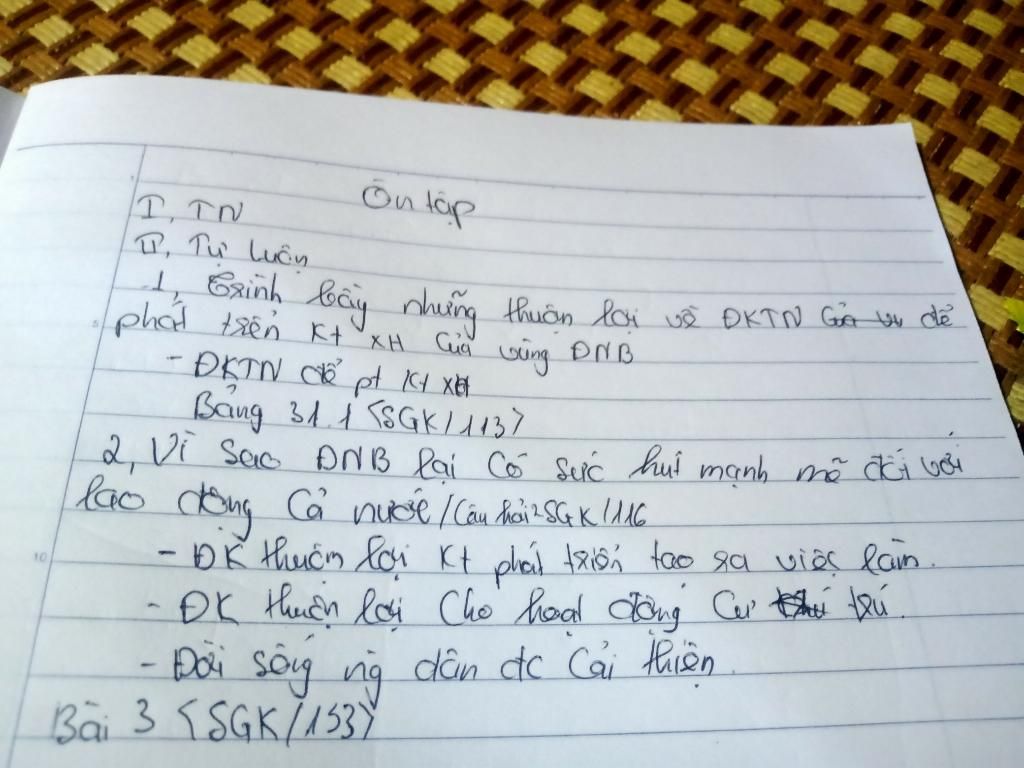 Ôn tập
I, TN
II, Tự luận
1, trình bày những thuận lợi về ĐKTN để
phát triển Kt XH Của vùng ĐNB
- ĐKTN để pt Kt XH
Bảng 31.1 <SGK/113>
2, Vì sao ĐNB lại Có sức hut mạnh mẽ đối với
lao động Cả nước/Câu hỏi 2 SGK/116
- ĐK thuận lợi Kt phát triển tạo ra việc làm.
- ĐK thuận lợi Cho hoạt động Cư trú.
- Đời sống ng dân đc Cải thiện.
Bài 3 <SGK/153>
5
10